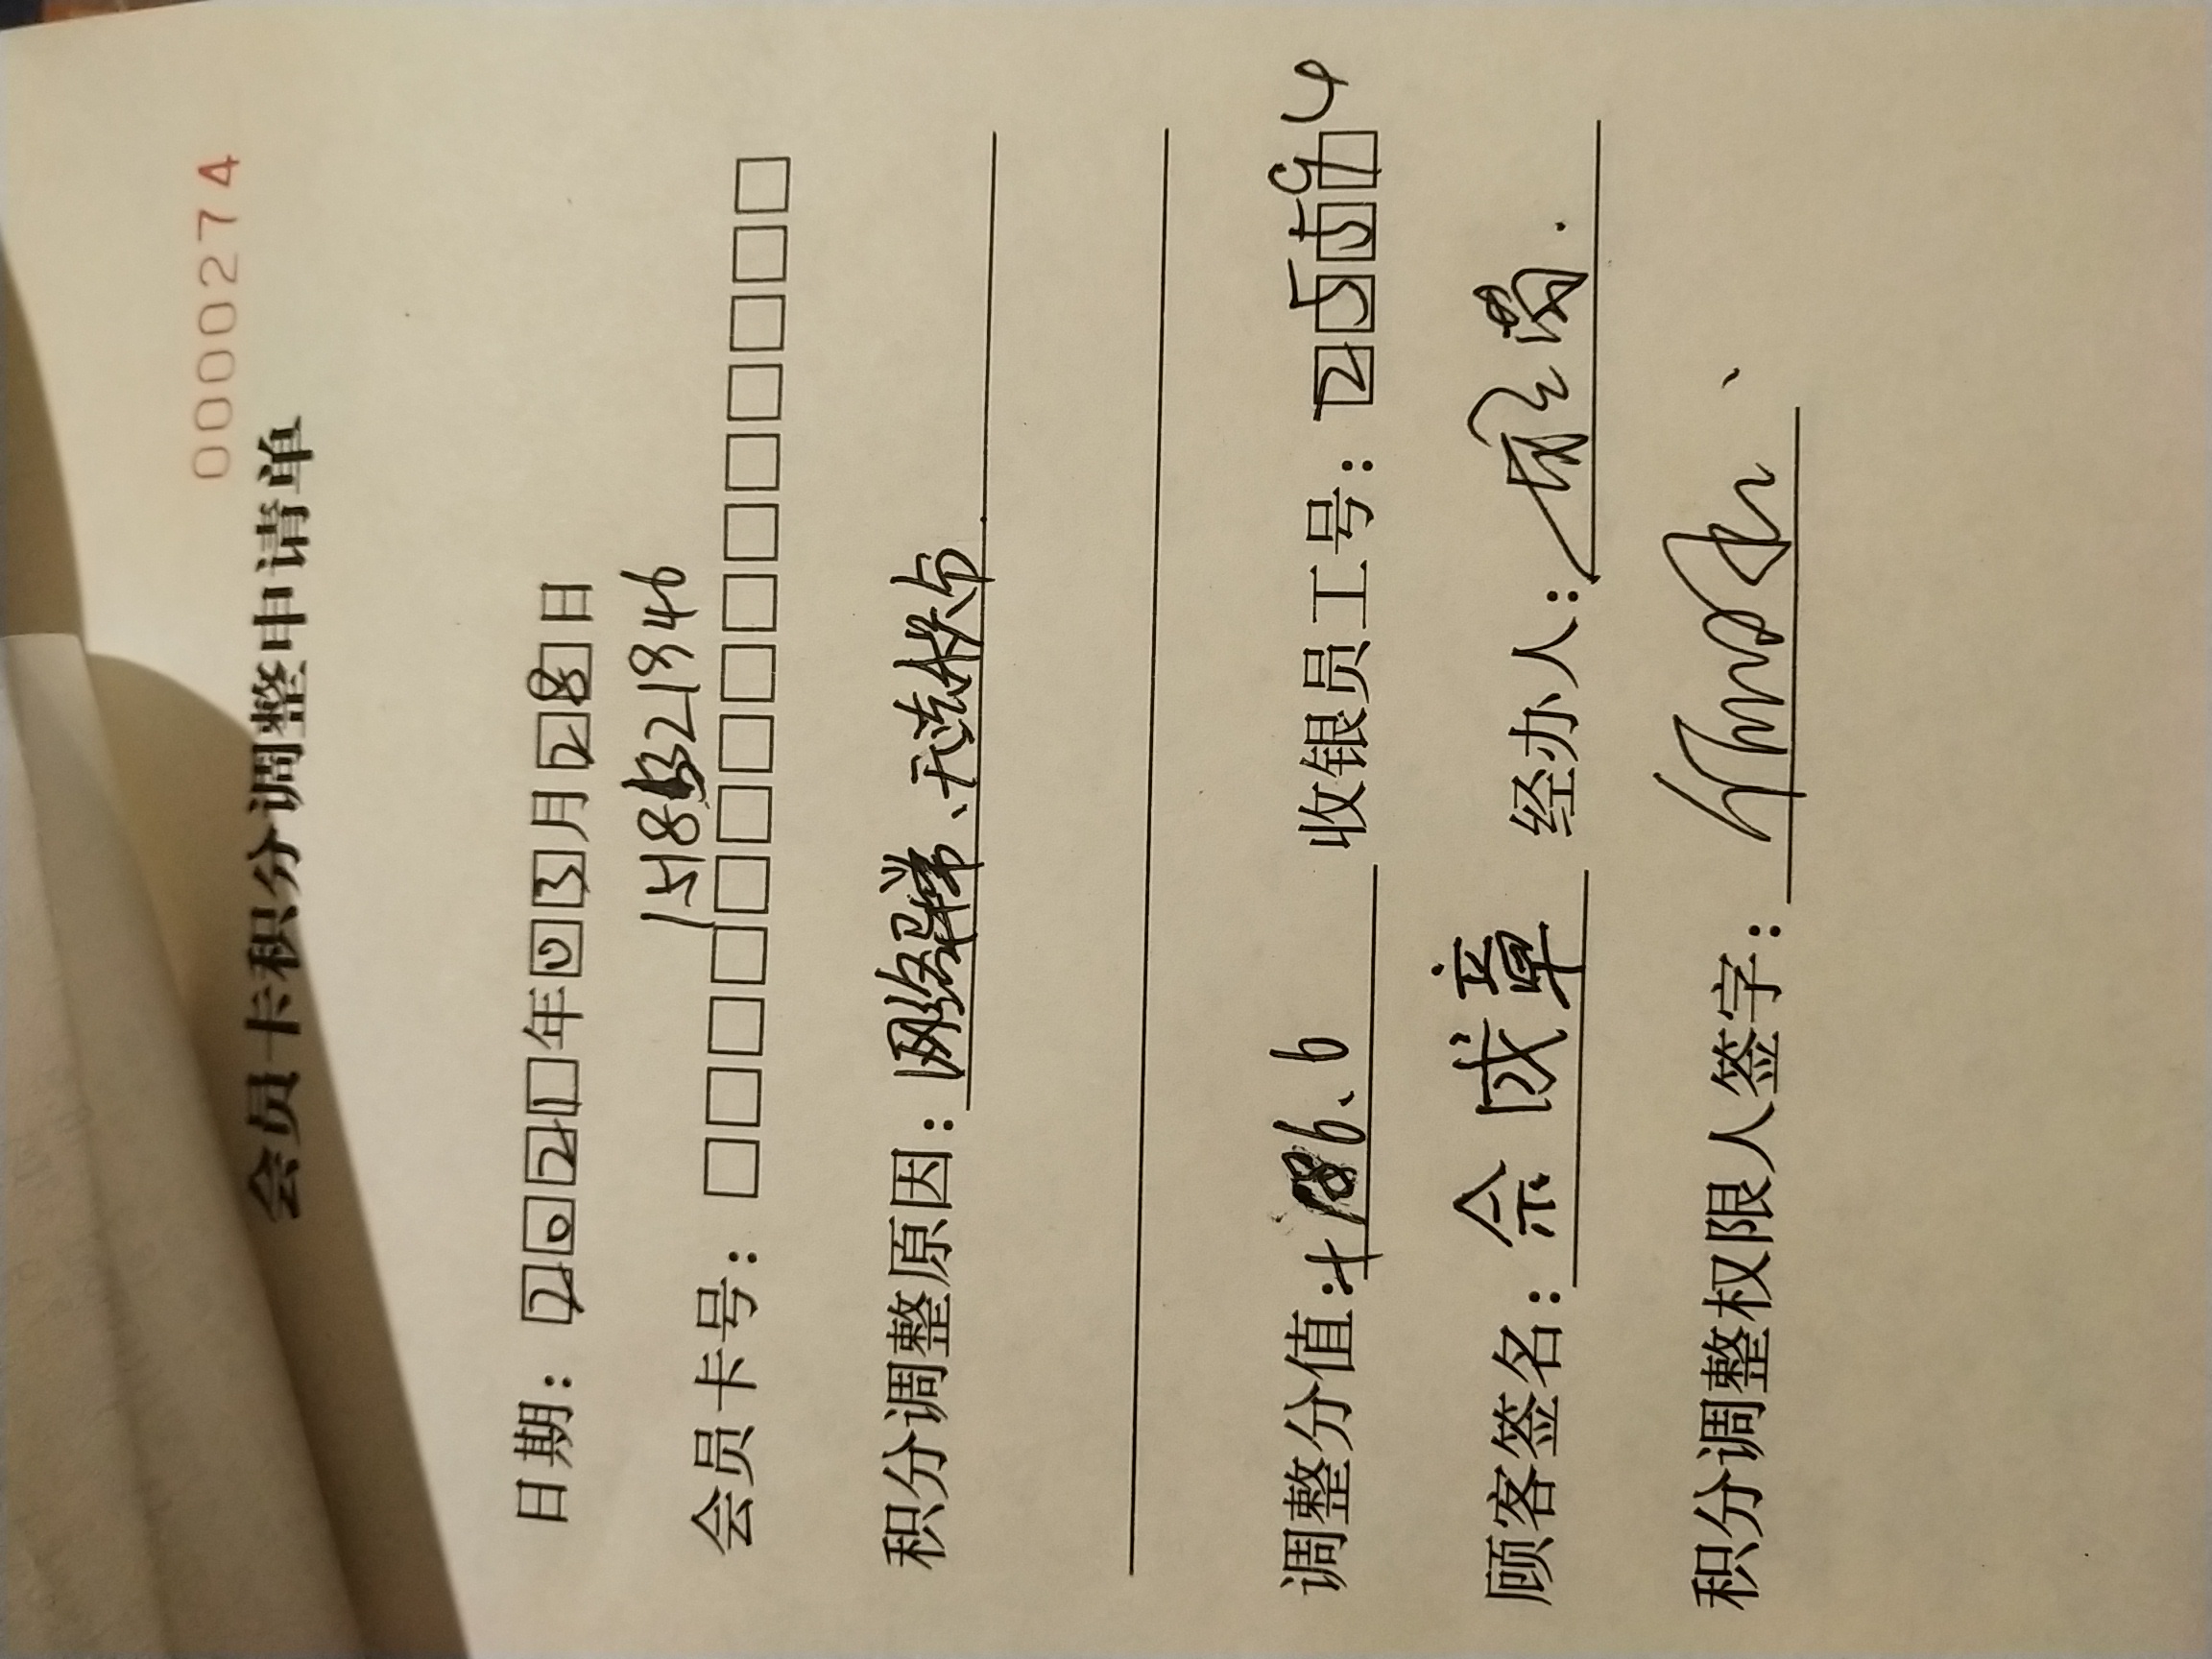 0000274
会员卡积分调整申请单
日期：2021年03月28日
会员卡号：15183219346
积分调整原因：网络异常、无法积分
调整分值：+186、6 收银员工号：2559
顾客签名：佘成章 经办人：
积分调整权限人签字：